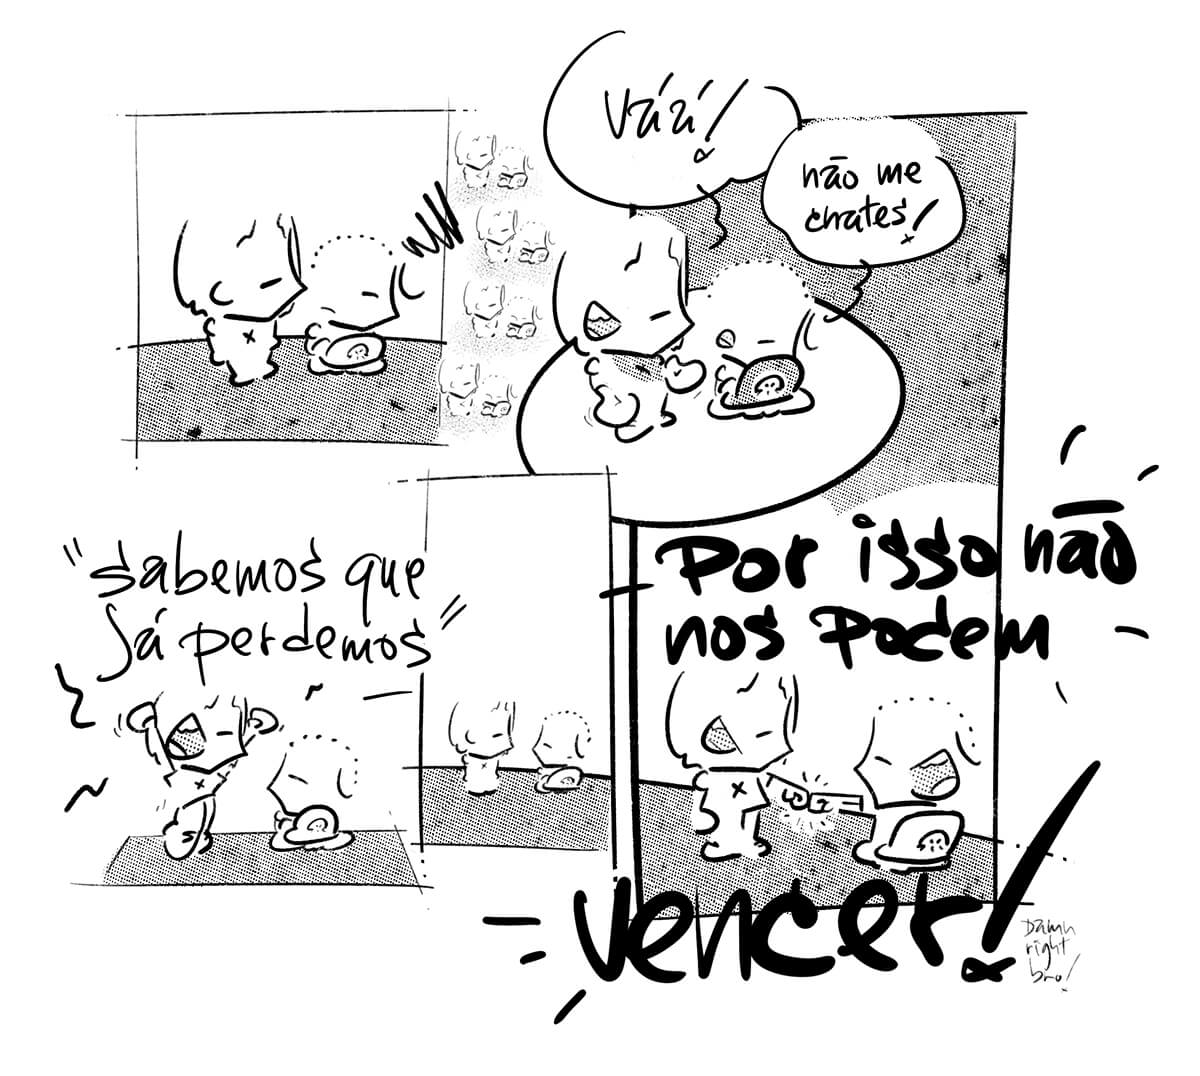 Vááá!
não me
chates!
"sabemos que
já perdemos"
Por isso não
nos podem
vencer!
Damn
right
bro!